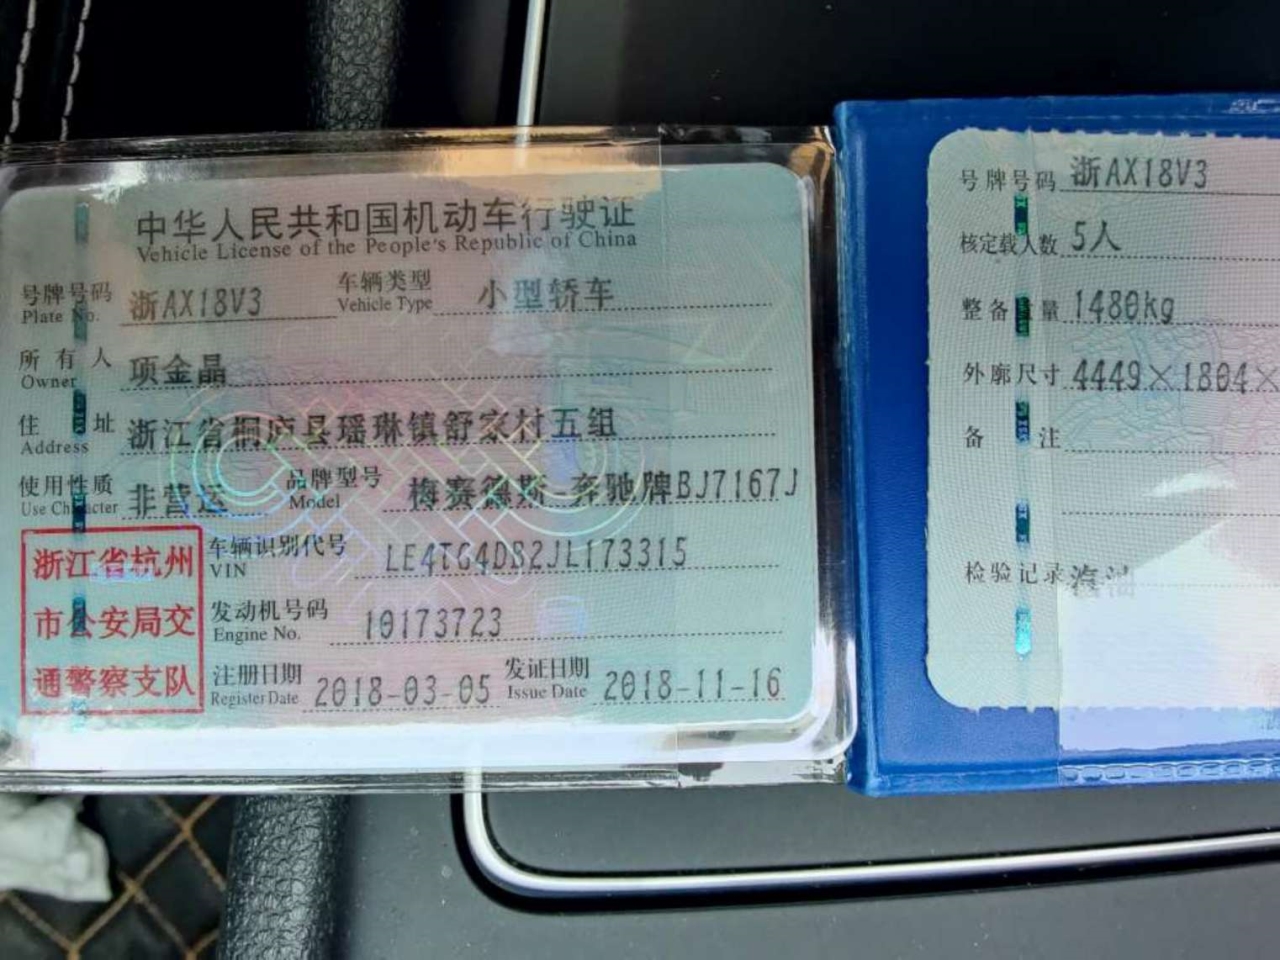 中华人民共和国机动车行驶证
Vehicle License of the People's Republic of China
号牌号码 浙AX18V3 车辆类型 小型轿车
Plate No. Vehicle Type
所有人 项金晶
Owner
住址 浙江省桐庐县瑶琳镇舒家村五组
Address
使用性质 非营运 品牌型号 梅赛德斯-奔驰牌BJ7167J
Use Character Model
浙江省杭州
市公安局交
通警察支队
车辆识别代号 LE4TG4DB2JL173315
VIN
发动机号码 10173723
Engine No.
注册日期 2018-03-05 发证日期 2018-11-16
Register Date Issue Date
号牌号码 浙AX18V3
核定载人数 5人
整备质量 1480kg
外廓尺寸 4449×1804×
备注
检验记录 汽油